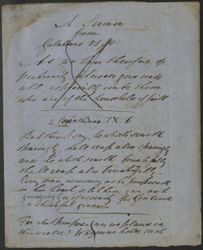 A Sermon
from
Galatians VI. 10.
As we have therefore op
portunity let us do good unto
all, especially unto them
who are of the household of faith
2 Corinthians IX. 6
But this I say, he which soweth
sparingly shall reap also sparingly
and he which soweth bountifully
shall reap also bountifully.
Every man according as he purposeth
in his heart, so let him give, not
grudgingly or of necessity, for God loveth
a cheerful giver.
For what purpose are we placed in
this world?